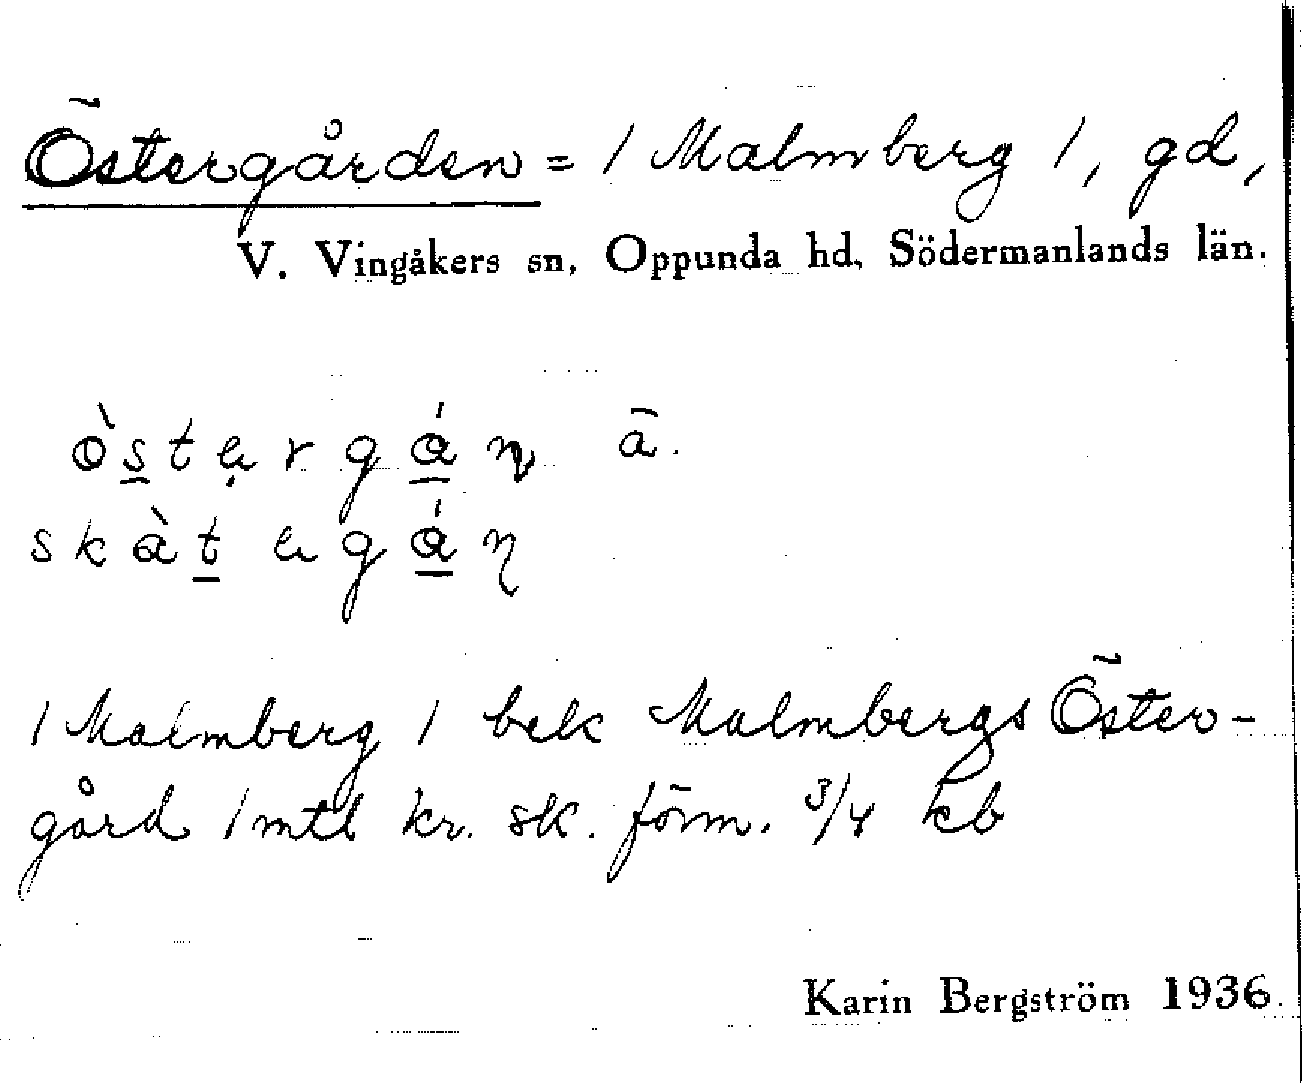 Östergården = / Malmberg /, gd,
V. Vingåkers sn, Oppunda hd, Södermanlands län.
ò s̲ t ə r g á̲ ṇ ā.
s k à t̲ ə g á̲ ṇ
/ Malmberg / bek Malmbergs Öster-
gård 1 mtl kr. sk. förm. 3/4 kb
Karin Bergström 1936.